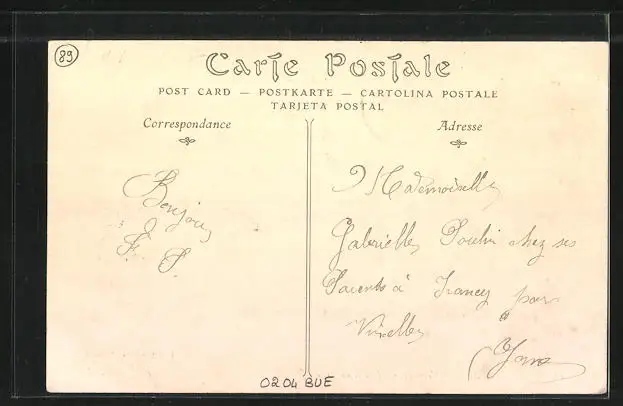 89
Carte Postale
POST CARD — POSTKARTE — CARTOLINA POSTALE
TARJETA POSTAL
Correspondance
Adresse
Bonjour
F. P.
Mademoiselle
Gabrielle Poulin chez ses
Parents à par
0204 BUE